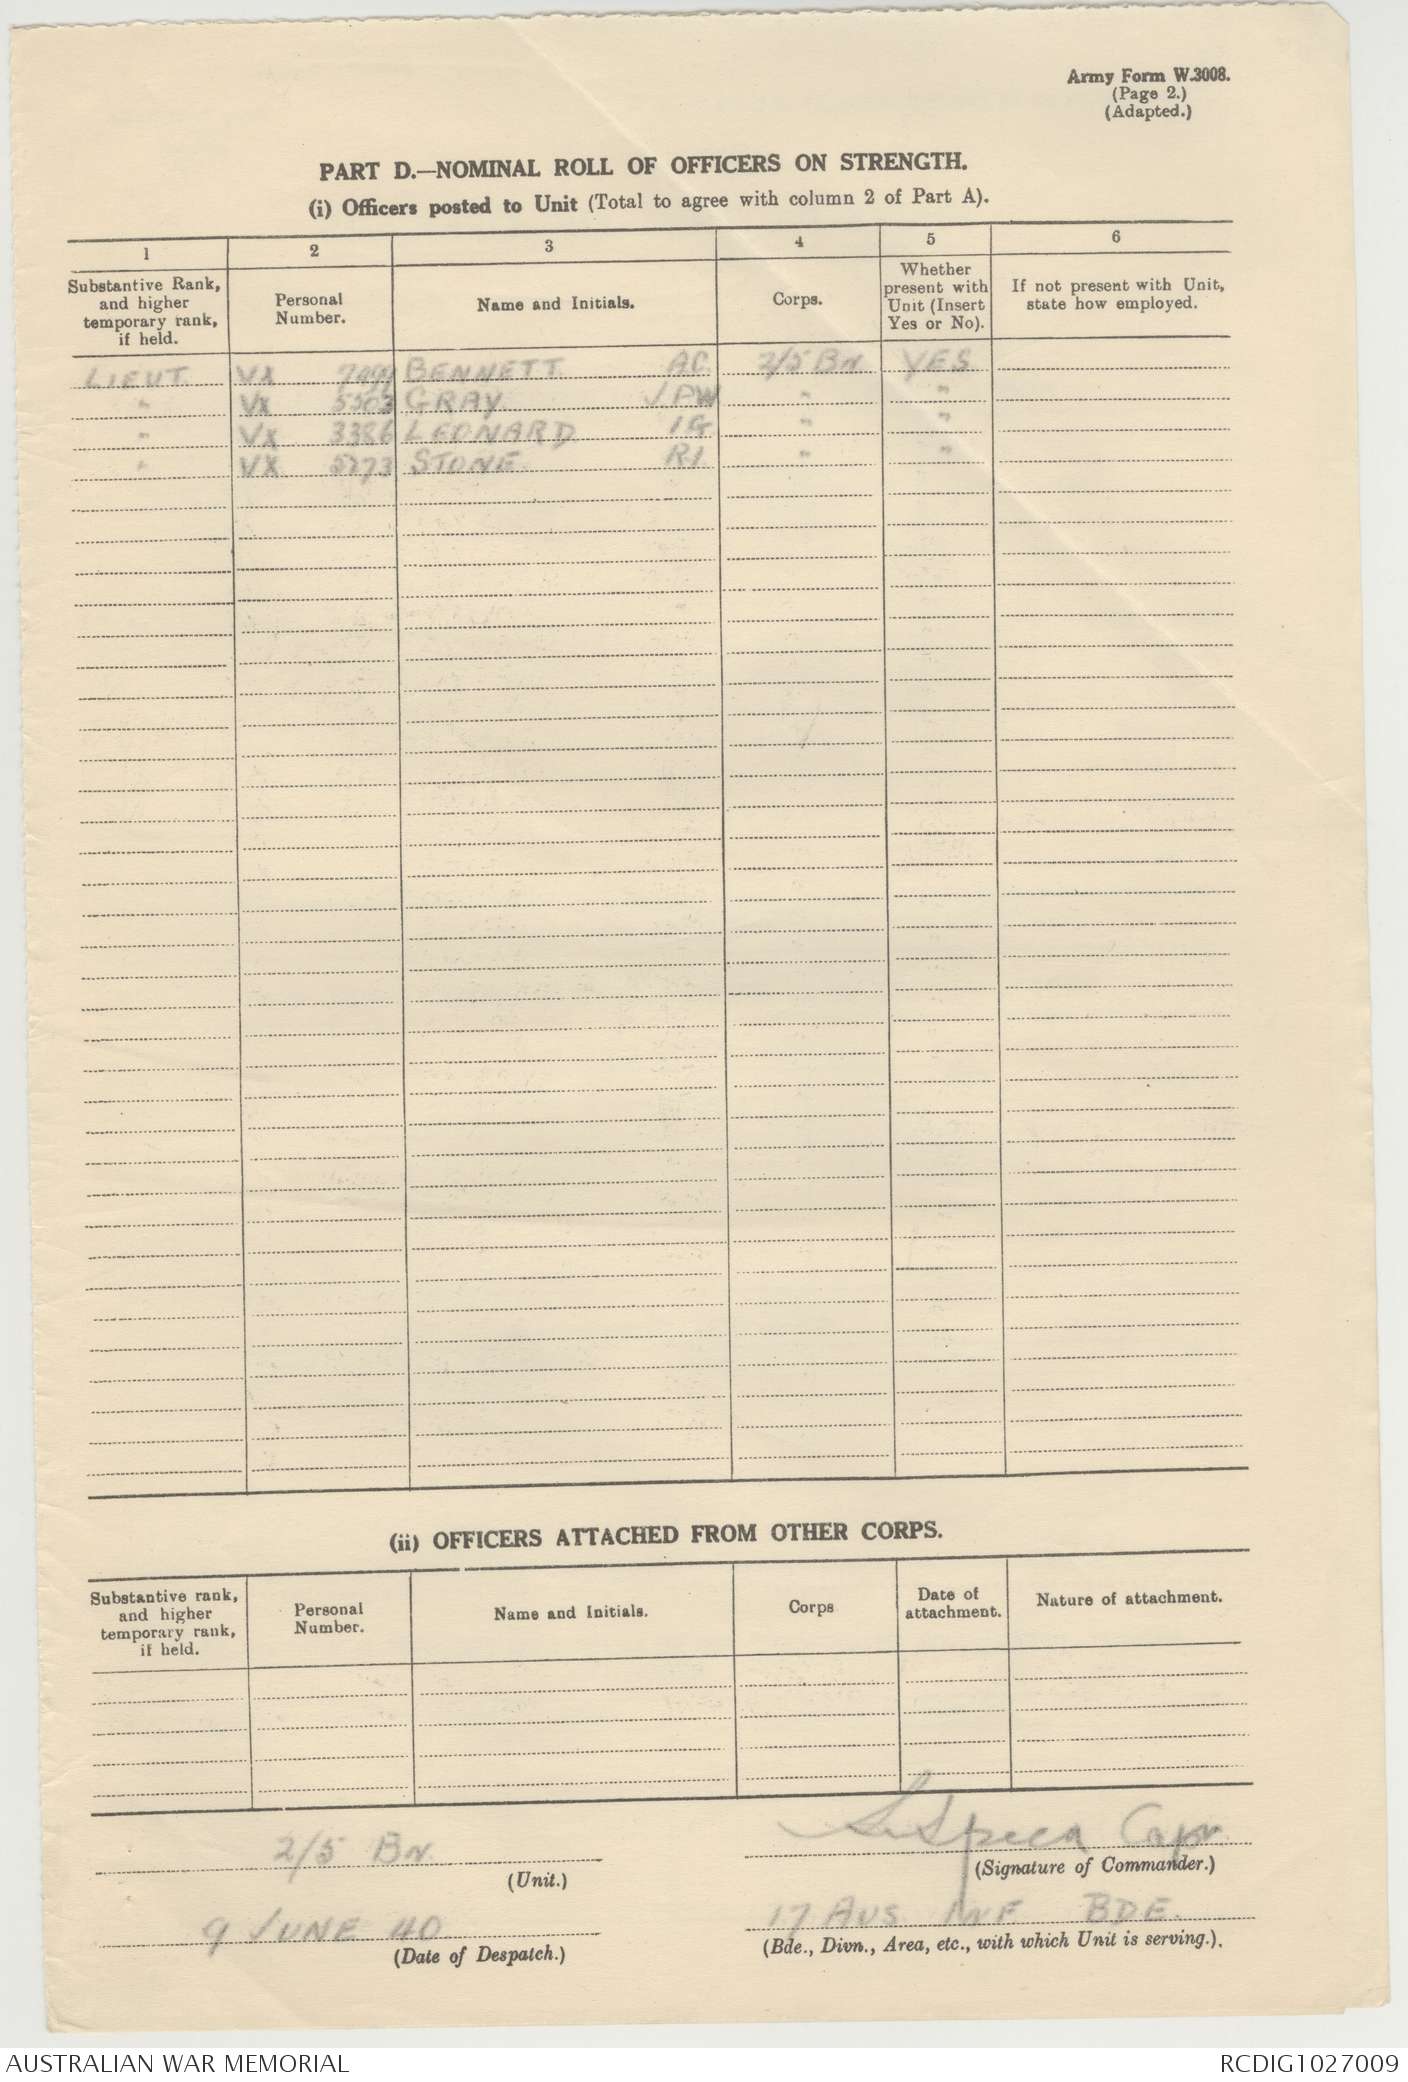 Army Form W.3008.
(Page 2.)
(Adapted.)
PART D.—NOMINAL ROLL OF OFFICERS ON STRENGTH.
(i) Officers posted to Unit (Total to agree with column 2 of Part A).
1 2 3 4 5 6
Substantive Rank, and higher temporary rank, if held. Personal Number. Name and Initials. Corps. Whether present with Unit (Insert Yes or No). If not present with Unit, state how employed.
LIEUT. VX BENNETT AC. 2/5 BN YES
" VX 5503 GRAY JPW " "
" VX 3386 LEONARD IG " "
" VX 5173 STONE RI. " "
(ii) OFFICERS ATTACHED FROM OTHER CORPS.
Substantive rank, and higher temporary rank, if held. Personal Number. Name and Initials. Corps Date of attachment. Nature of attachment.
2/5 BN. Capt
(Unit.) (Signature of Commander.)
9 JUNE 40 17 AUS INF BDE.
(Date of Despatch.) (Bde., Divn., Area, etc., with which Unit is serving.).
AUSTRALIAN WAR MEMORIAL RCDIG1027009